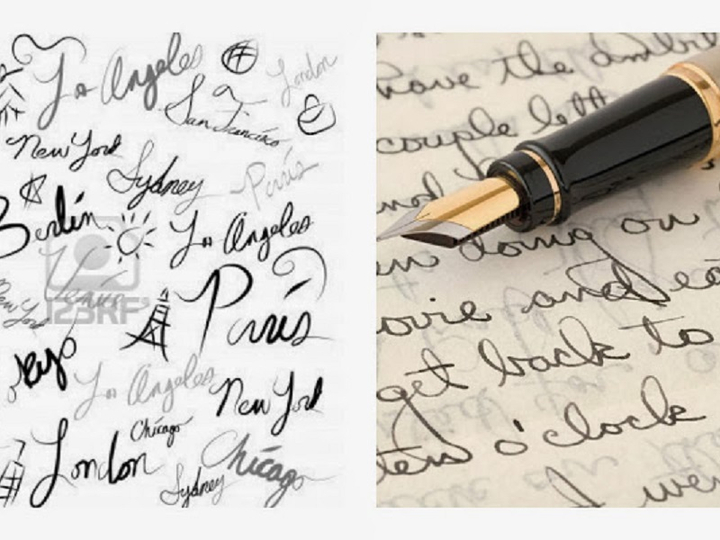 Los Angeles
London
San Francisco
New York
Sydney
Paris
Berlin
Los Angeles
Venice
New York
123RF
Paris
Los Angeles
New York
Chicago
London
Chicago
Sydney
have the
couple left
doing on
and
get back to
ten o'clock
I wer